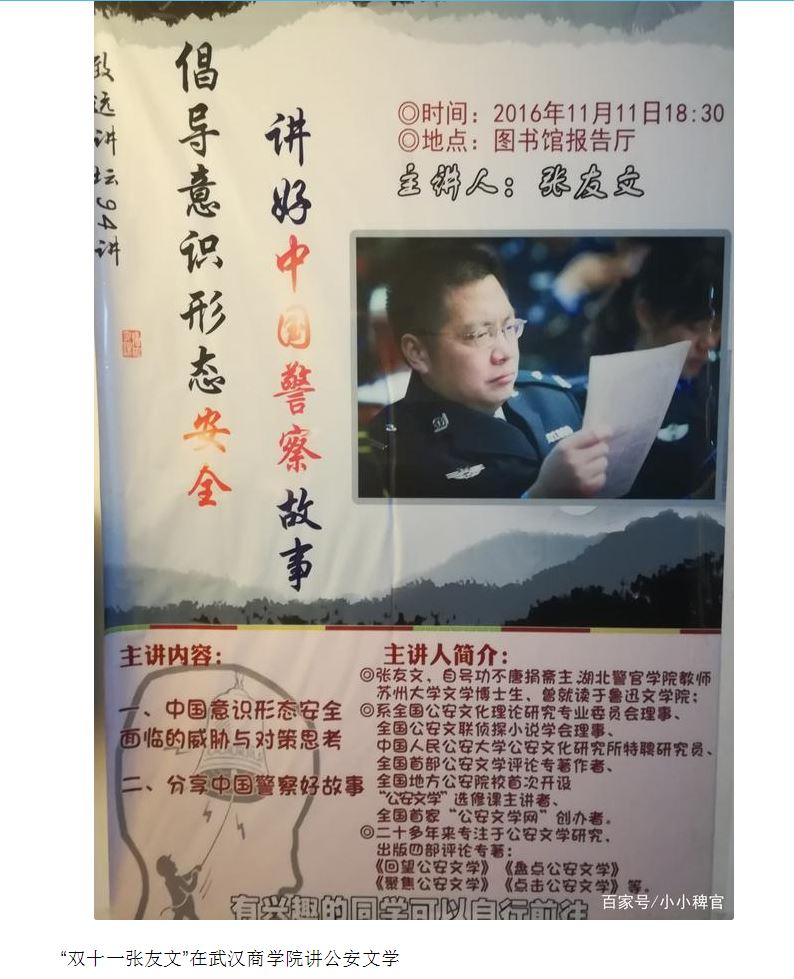 致远讲坛94讲
倡导意识形态安全
讲好中国警察故事
◎时间：2016年11月11日18:30
◎地点：图书馆报告厅
主讲人：张友文
主讲内容：
一、中国意识形态安全
面临的威胁与对策思考
二、分享中国警察好故事
主讲人简介：
◎张友文，自号功不唐捐斋主,湖北警官学院教师
苏州大学文学博士生、曾就读于鲁迅文学院；
◎系全国公安文化理论研究专业委员会理事、
全国公安文联侦探小说学会理事、
中国人民公安大学公安文化研究所特聘研究员、
全国首部公安文学评论专著作者、
全国地方公安院校首次开设
“公安文学”选修课主讲者、
全国首家“公安文学网”创办者。
◎二十多年来专注于公安文学研究，
出版四部评论专著：
《回望公安文学》《盘点公安文学》
《聚焦公安文学》《点击公安文学》等。
有兴趣的同学可以自行前往
百家号/小小稗官
“双十一张友文”在武汉商学院讲公安文学